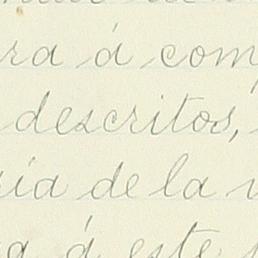 ra á com
descritos,
ia de la v
a á este